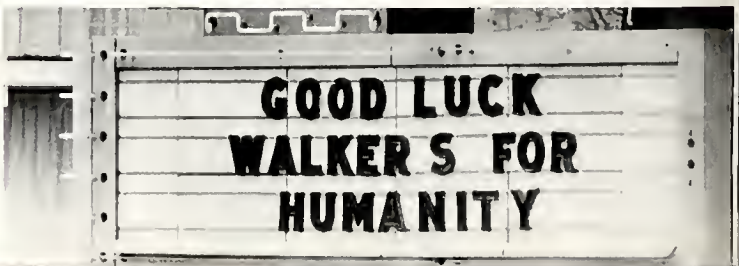 GOOD LUCK
WALKERS FOR
HUMANITY